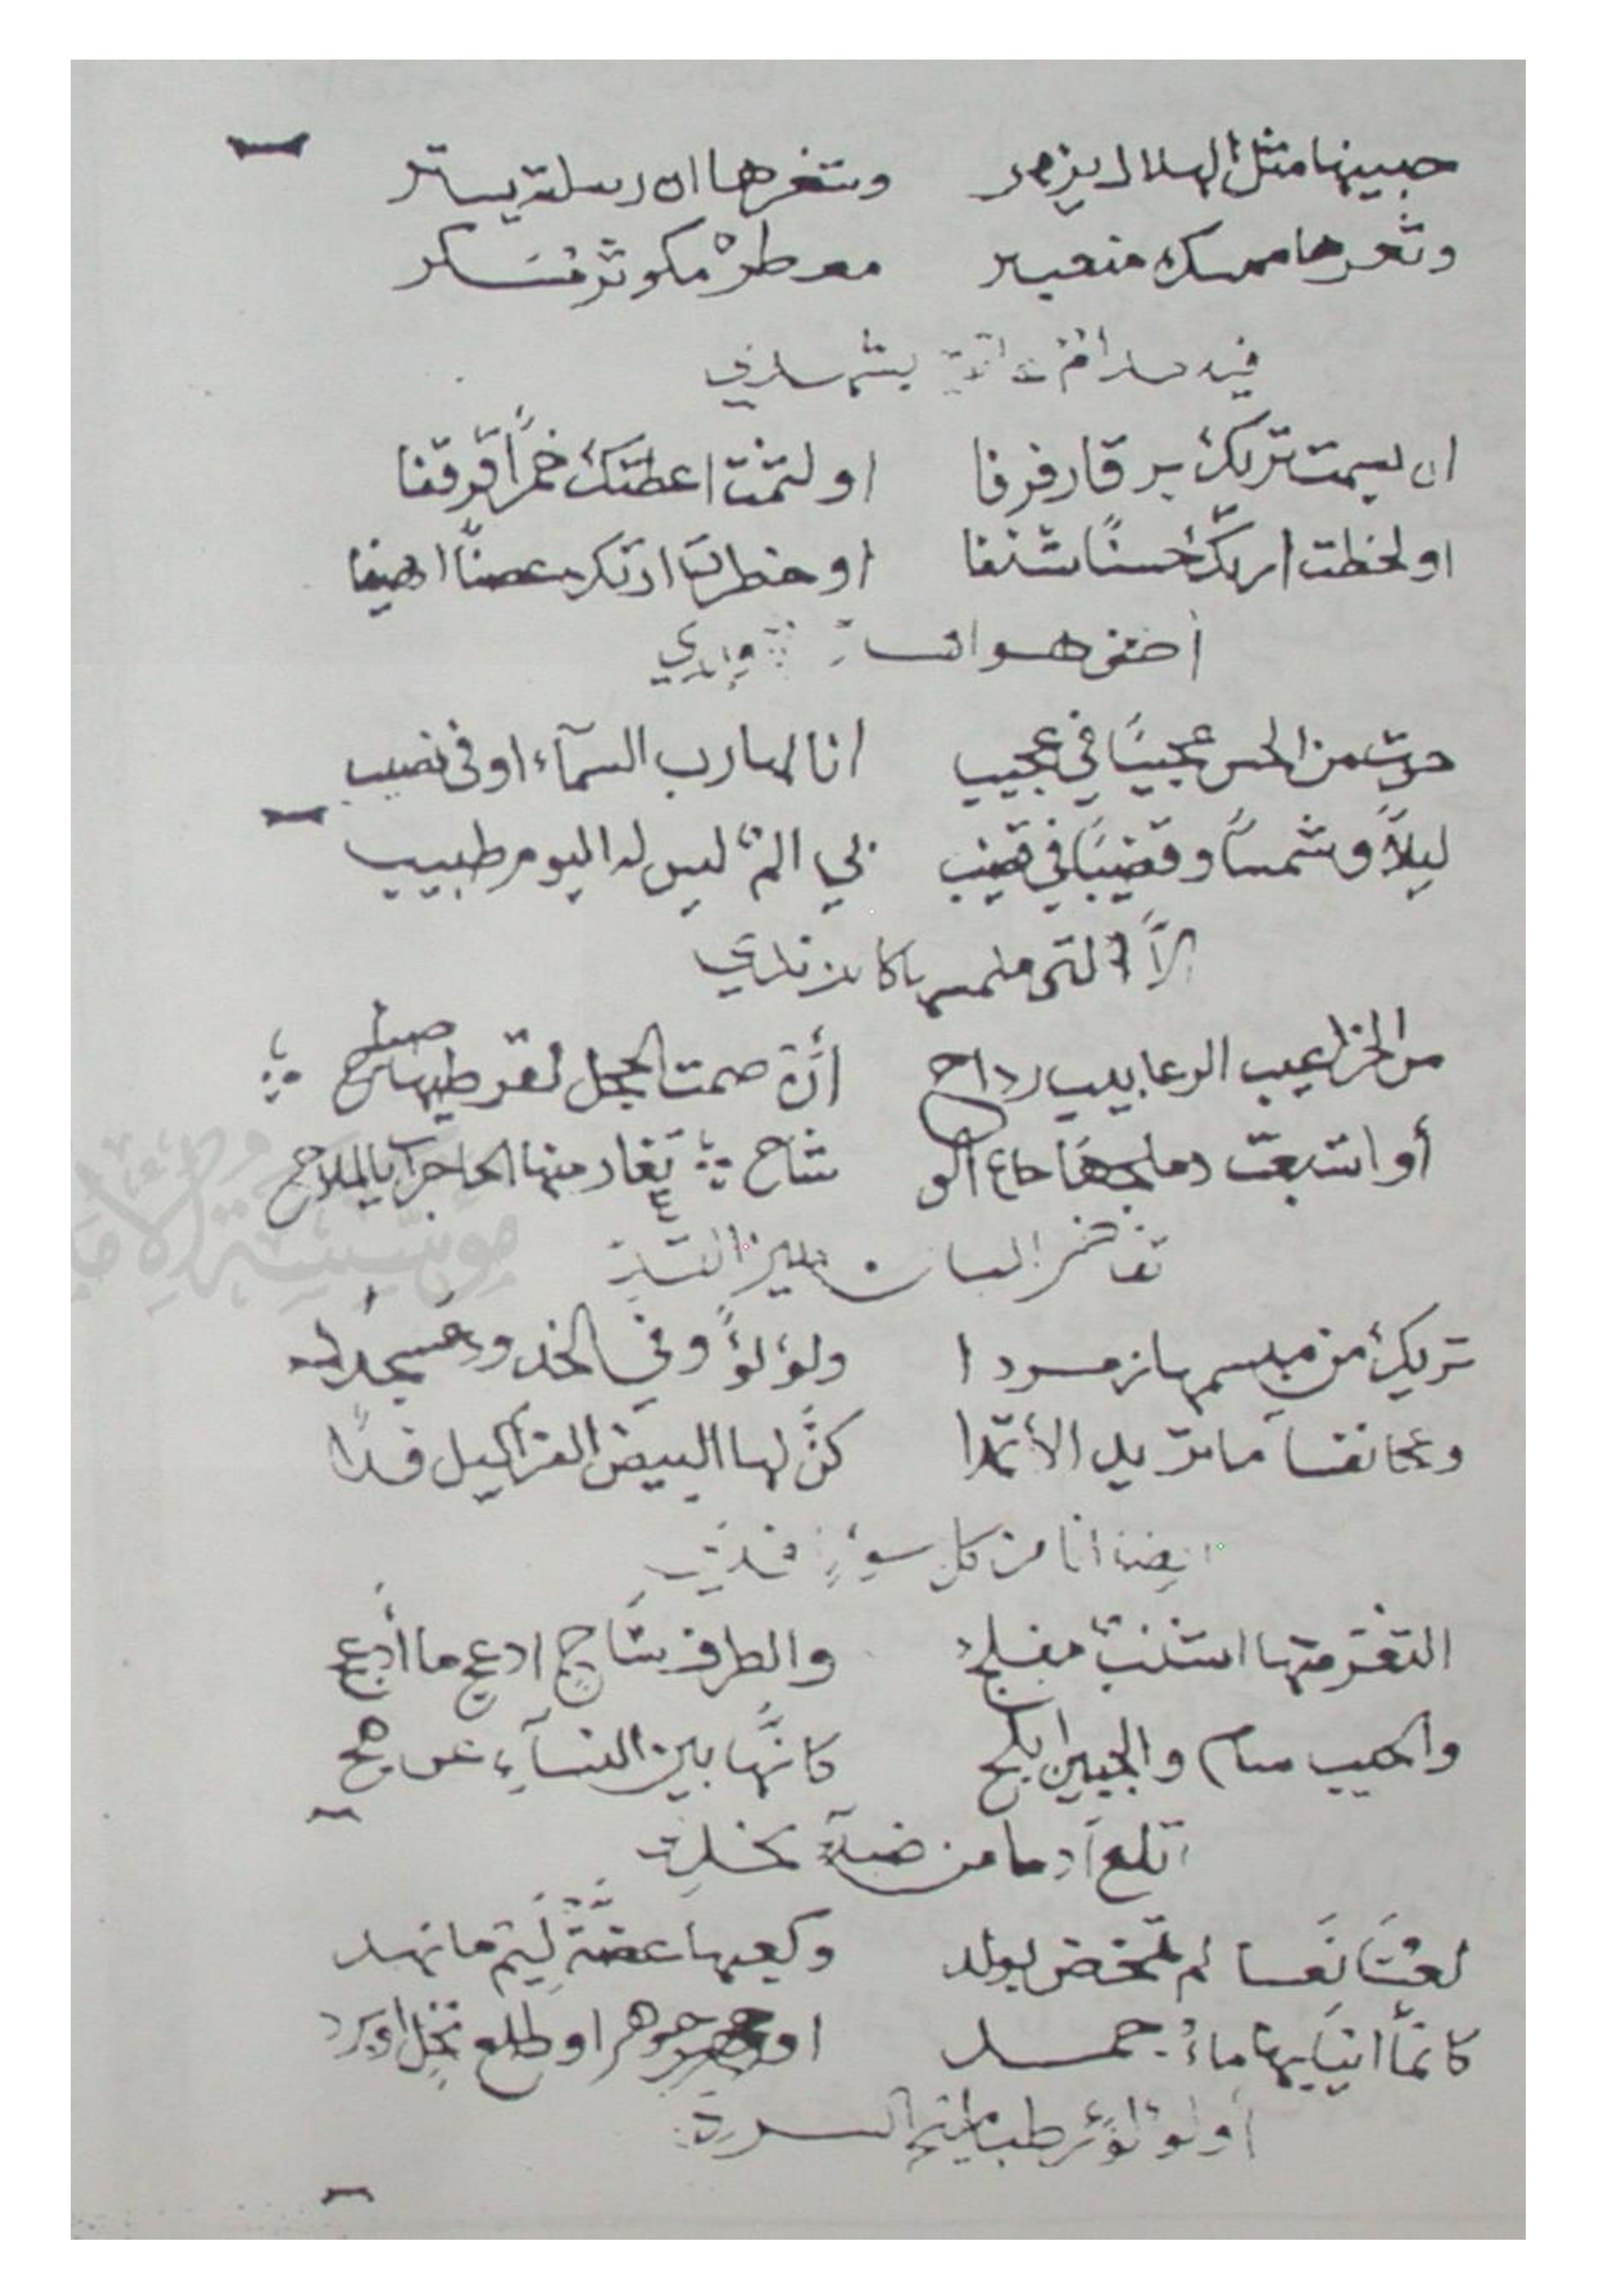 جبينها مثل الهلال يزهر وشعرها ان رسلته يساتر
وثغرها ممسك معنبر معطر مكوثر مسكر
فيه مدام
ان بسمت تريك برقا رفرفا او لثمت اعطتك خمرًا قرقفا
او لحظت اريك حسنًا شنفا او خطرت ارتك غصنًا اهيفا
أضنى هواها
حوت من الحسن عجيبًا في عجيب انا لها رب السمآء اوفى نصيب
ليلًا وشمسًا وقضيبًا في قضيب بي الم ليس له اليوم طبيب
إلّا التي ملمسها كالزندي
من الخراعيب الرعابيب رداح أن صمت الحجل لقرطيها صياح
أو اشبعت دملجها جاع الوشاح تغار منها الحاجرات بالملاح
تفاخر البان بلين القد
تريك من مبسمها زمردا ولؤلؤًا وفي الخدود عسجدا
وعانقسا ما تريد الأثمدا كنّ لها البيض العراكيل فدا
ايضا انا من كل سوءٍ فدي
الثغر منها اشنب مفلج والطرف ساج ادعج ما أدعج
والجيب سام والجبين ابلج كانّها بين النسآء عوهج
اتلع ادما من ضبآء نجد
لعسا لم تمخض بولد وكعبها غضّة ليثم ما نهد
كانما انيابها ماء جمد او جوهر او طلع نخل او برد
أو لؤلؤ رطب